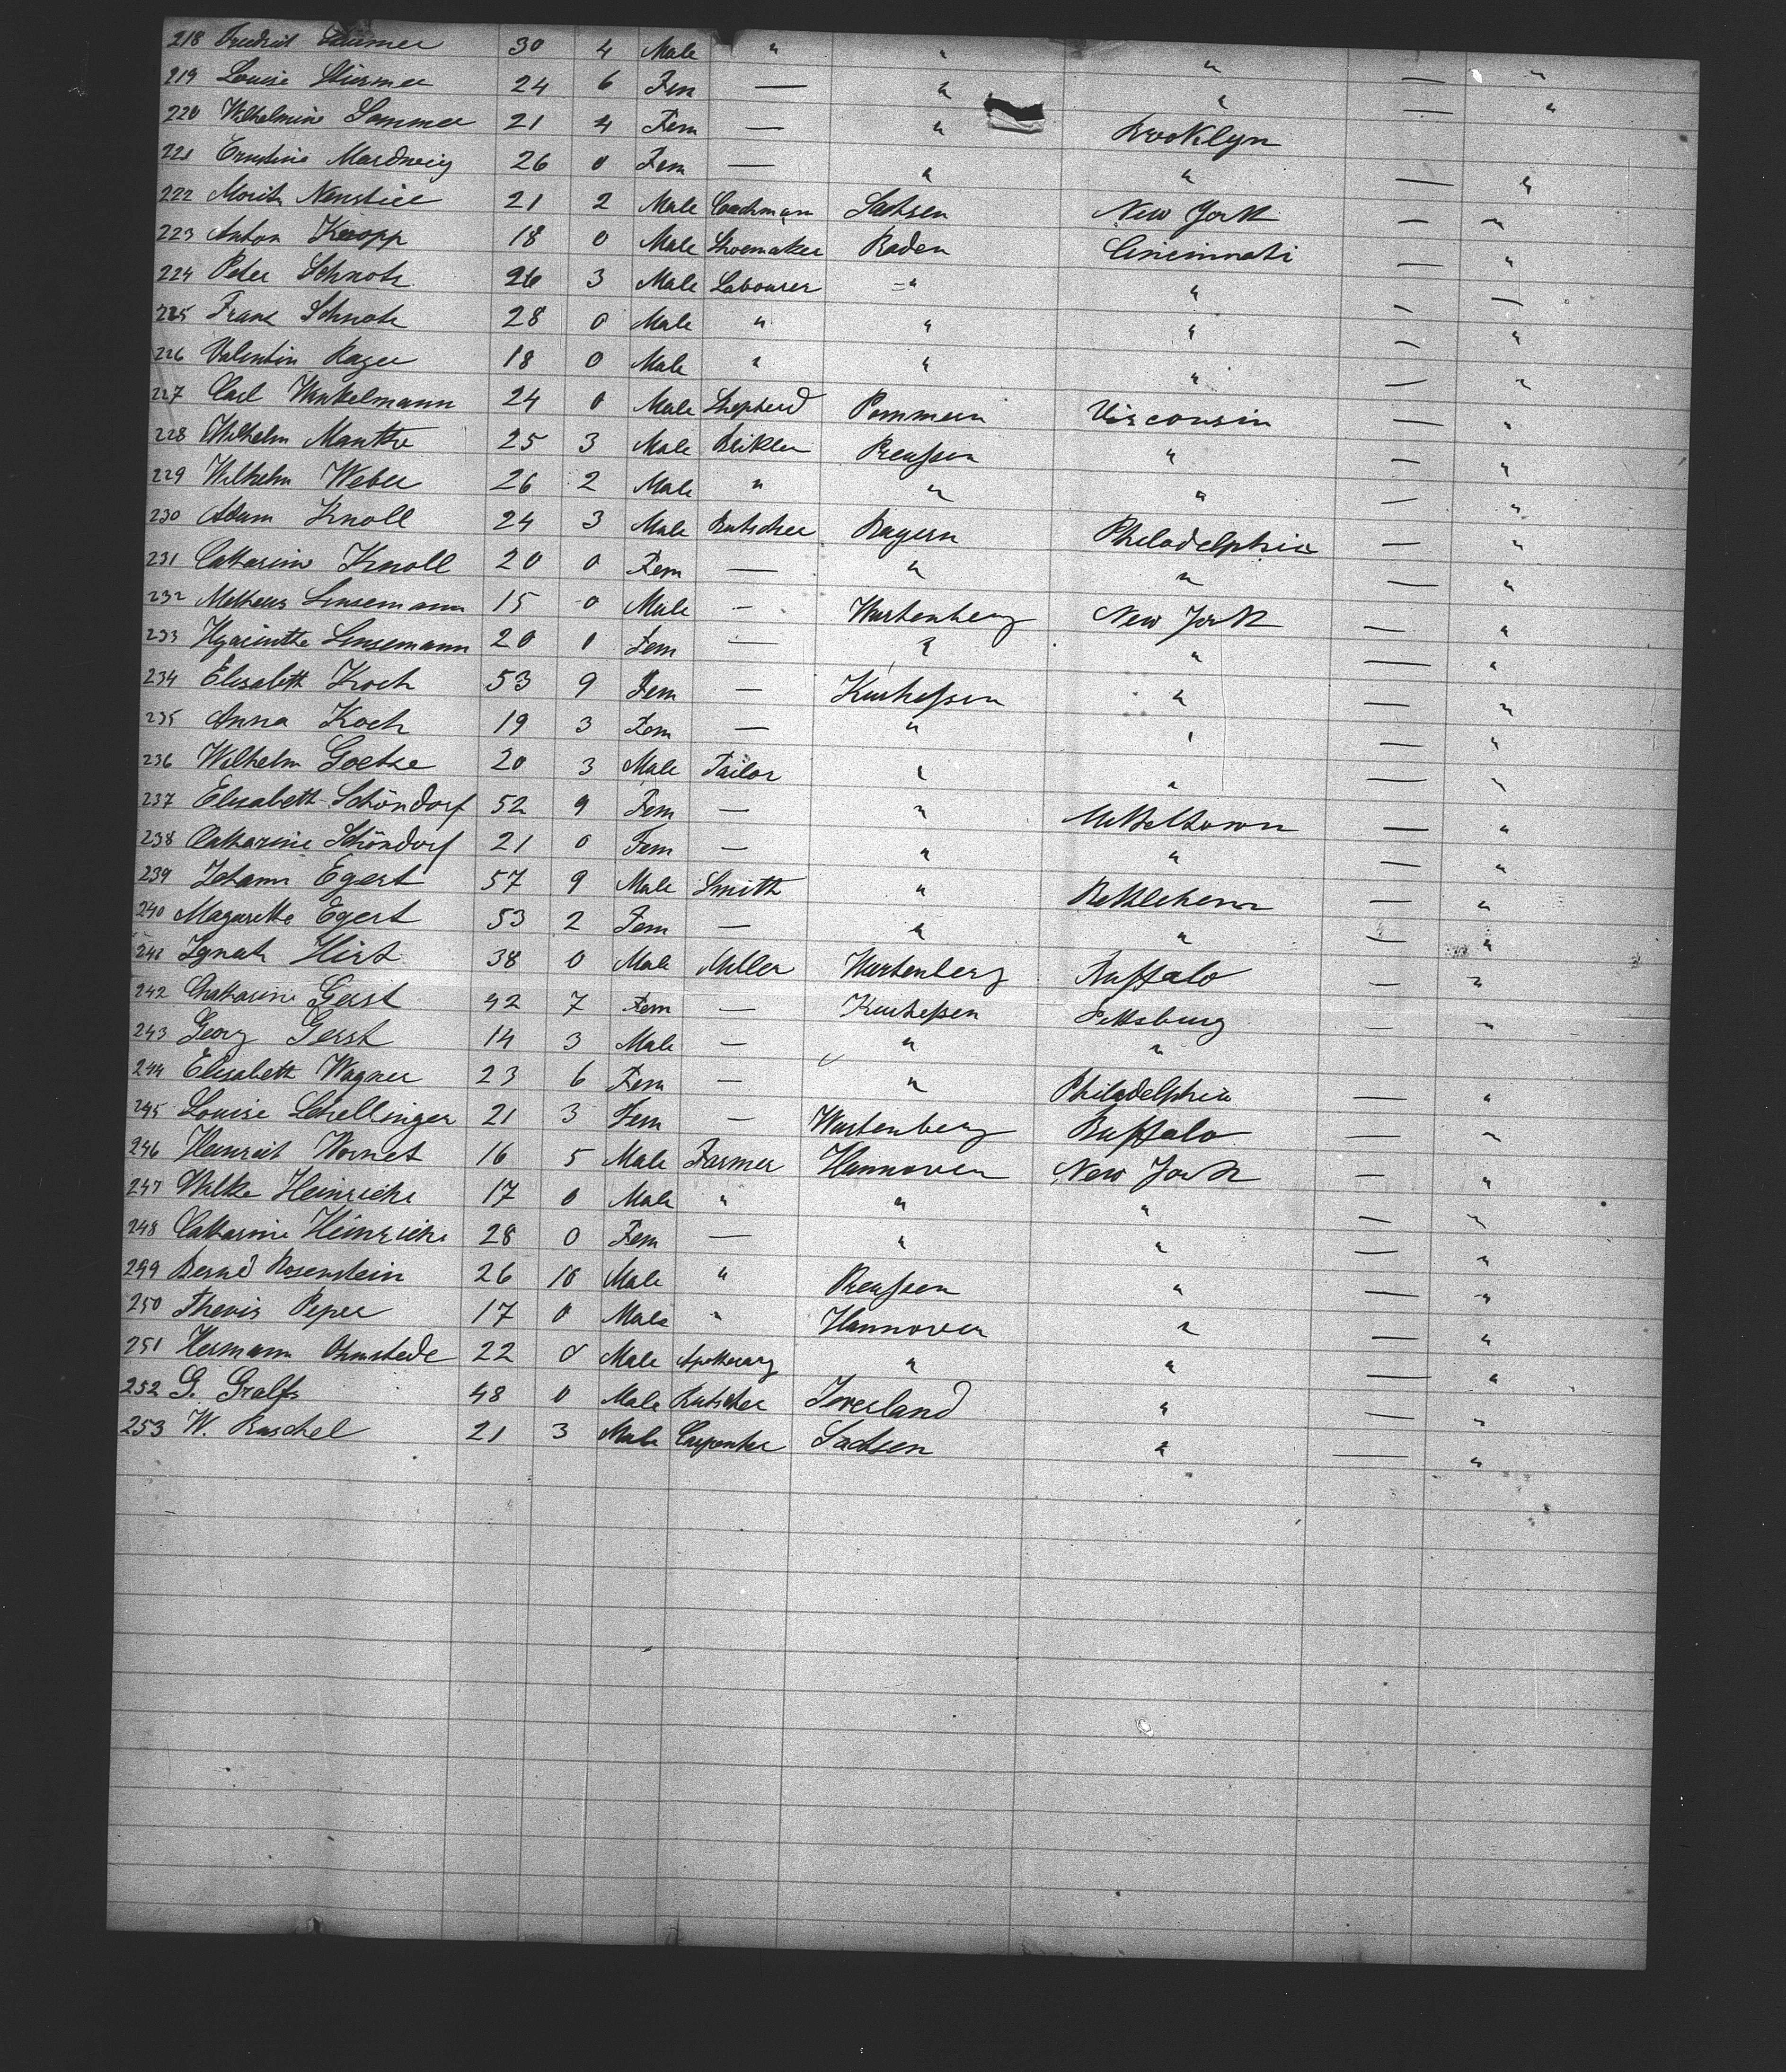 218 30 4 Male " " " — "
219 Louise Stürmer 24 6 Fem — " " — "
220 Wilhelmine Sommer 21 4 Fem — " Brooklyn
221 Ernstine 26 0 Fem — " " — "
222 Moritz 21 2 Male Coachman Sachsen New York — "
223 Anton Kropp 18 0 Male Shoemaker Baden Cincinnati — "
224 Peter Schnotz 26 3 Male Labourer " " — —
225 Franz Schnotz 28 0 Male " " " — "
226 Valentin 18 0 Male " " " — "
227 Carl Winkelmann 24 0 Male Shepherd Pommern Visconsin — "
228 Wilhelm 25 3 Male Preussen " — "
229 Wilhelm Weber 26 2 Male " " " — "
230 Adam Knoll 24 3 Male Butscher Bayern Philadelphia — "
231 Catharine Knoll 20 0 Fem — " " — "
232 Linsemann 15 0 Male — Wurtenberg New York — "
233 Hyacinthe Linsemann 20 0 Fem — " " — "
234 Elisabeth Koch 53 9 Fem — Kurhessen " — "
235 Anna Koch 19 3 Fem — " " — "
236 Wilhelm Goetze 20 3 Male Tailor " " — "
237 Elisabeth Schöndorf 52 9 Fem — " — "
238 Catharine Schöndorf 21 0 Fem — " " — "
239 Johann Egert 57 9 Male Smith " Bethlehem — "
240 Magarethe Egert 53 2 Fem — " " — "
241 Ignatz Hirt 38 0 Male Miller Wurtenberg Buffalo — "
242 Chatarine Gerst 42 7 Fem — Kurhessen Pittsburg — "
243 Georg Gerst 14 3 Male — " "
244 Elisabeth Wagner 23 6 Fem — " Philadelphia — "
245 Louise Schellinger 21 3 Fem — Wurtenberg Buffalo — "
246 Heinrich Wornet 16 5 Male Farmer Hannover New York — "
247 Wilke Heinrichs 17 0 Male " " " — "
248 Catharine Heinrichs 28 0 Fem — " " — "
299 Bernd Rosenstein 26 10 Male " Preussen " — "
250 Peper 17 0 Male " Hannover " — "
251 Hermann Ohmstede 22 0 Male Apothecary " " — "
252 G. Gralfs 48 0 Male Butscher Jeverland " — "
253 W. Buschel 21 3 Male Carpenter Sachsen " — "